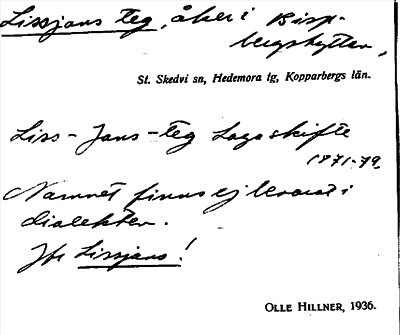 Lissjans teg, åker i Bisp-
bergshyttan,
St. Skedvi sn, Hedemora tg, Kopparbergs län.
Liss-Jans-teg Laga skifte
1871-79.
Namnet finns ej levande i
dialekten.
Jfr Lissjans!
OLLE HILLNER, 1936.